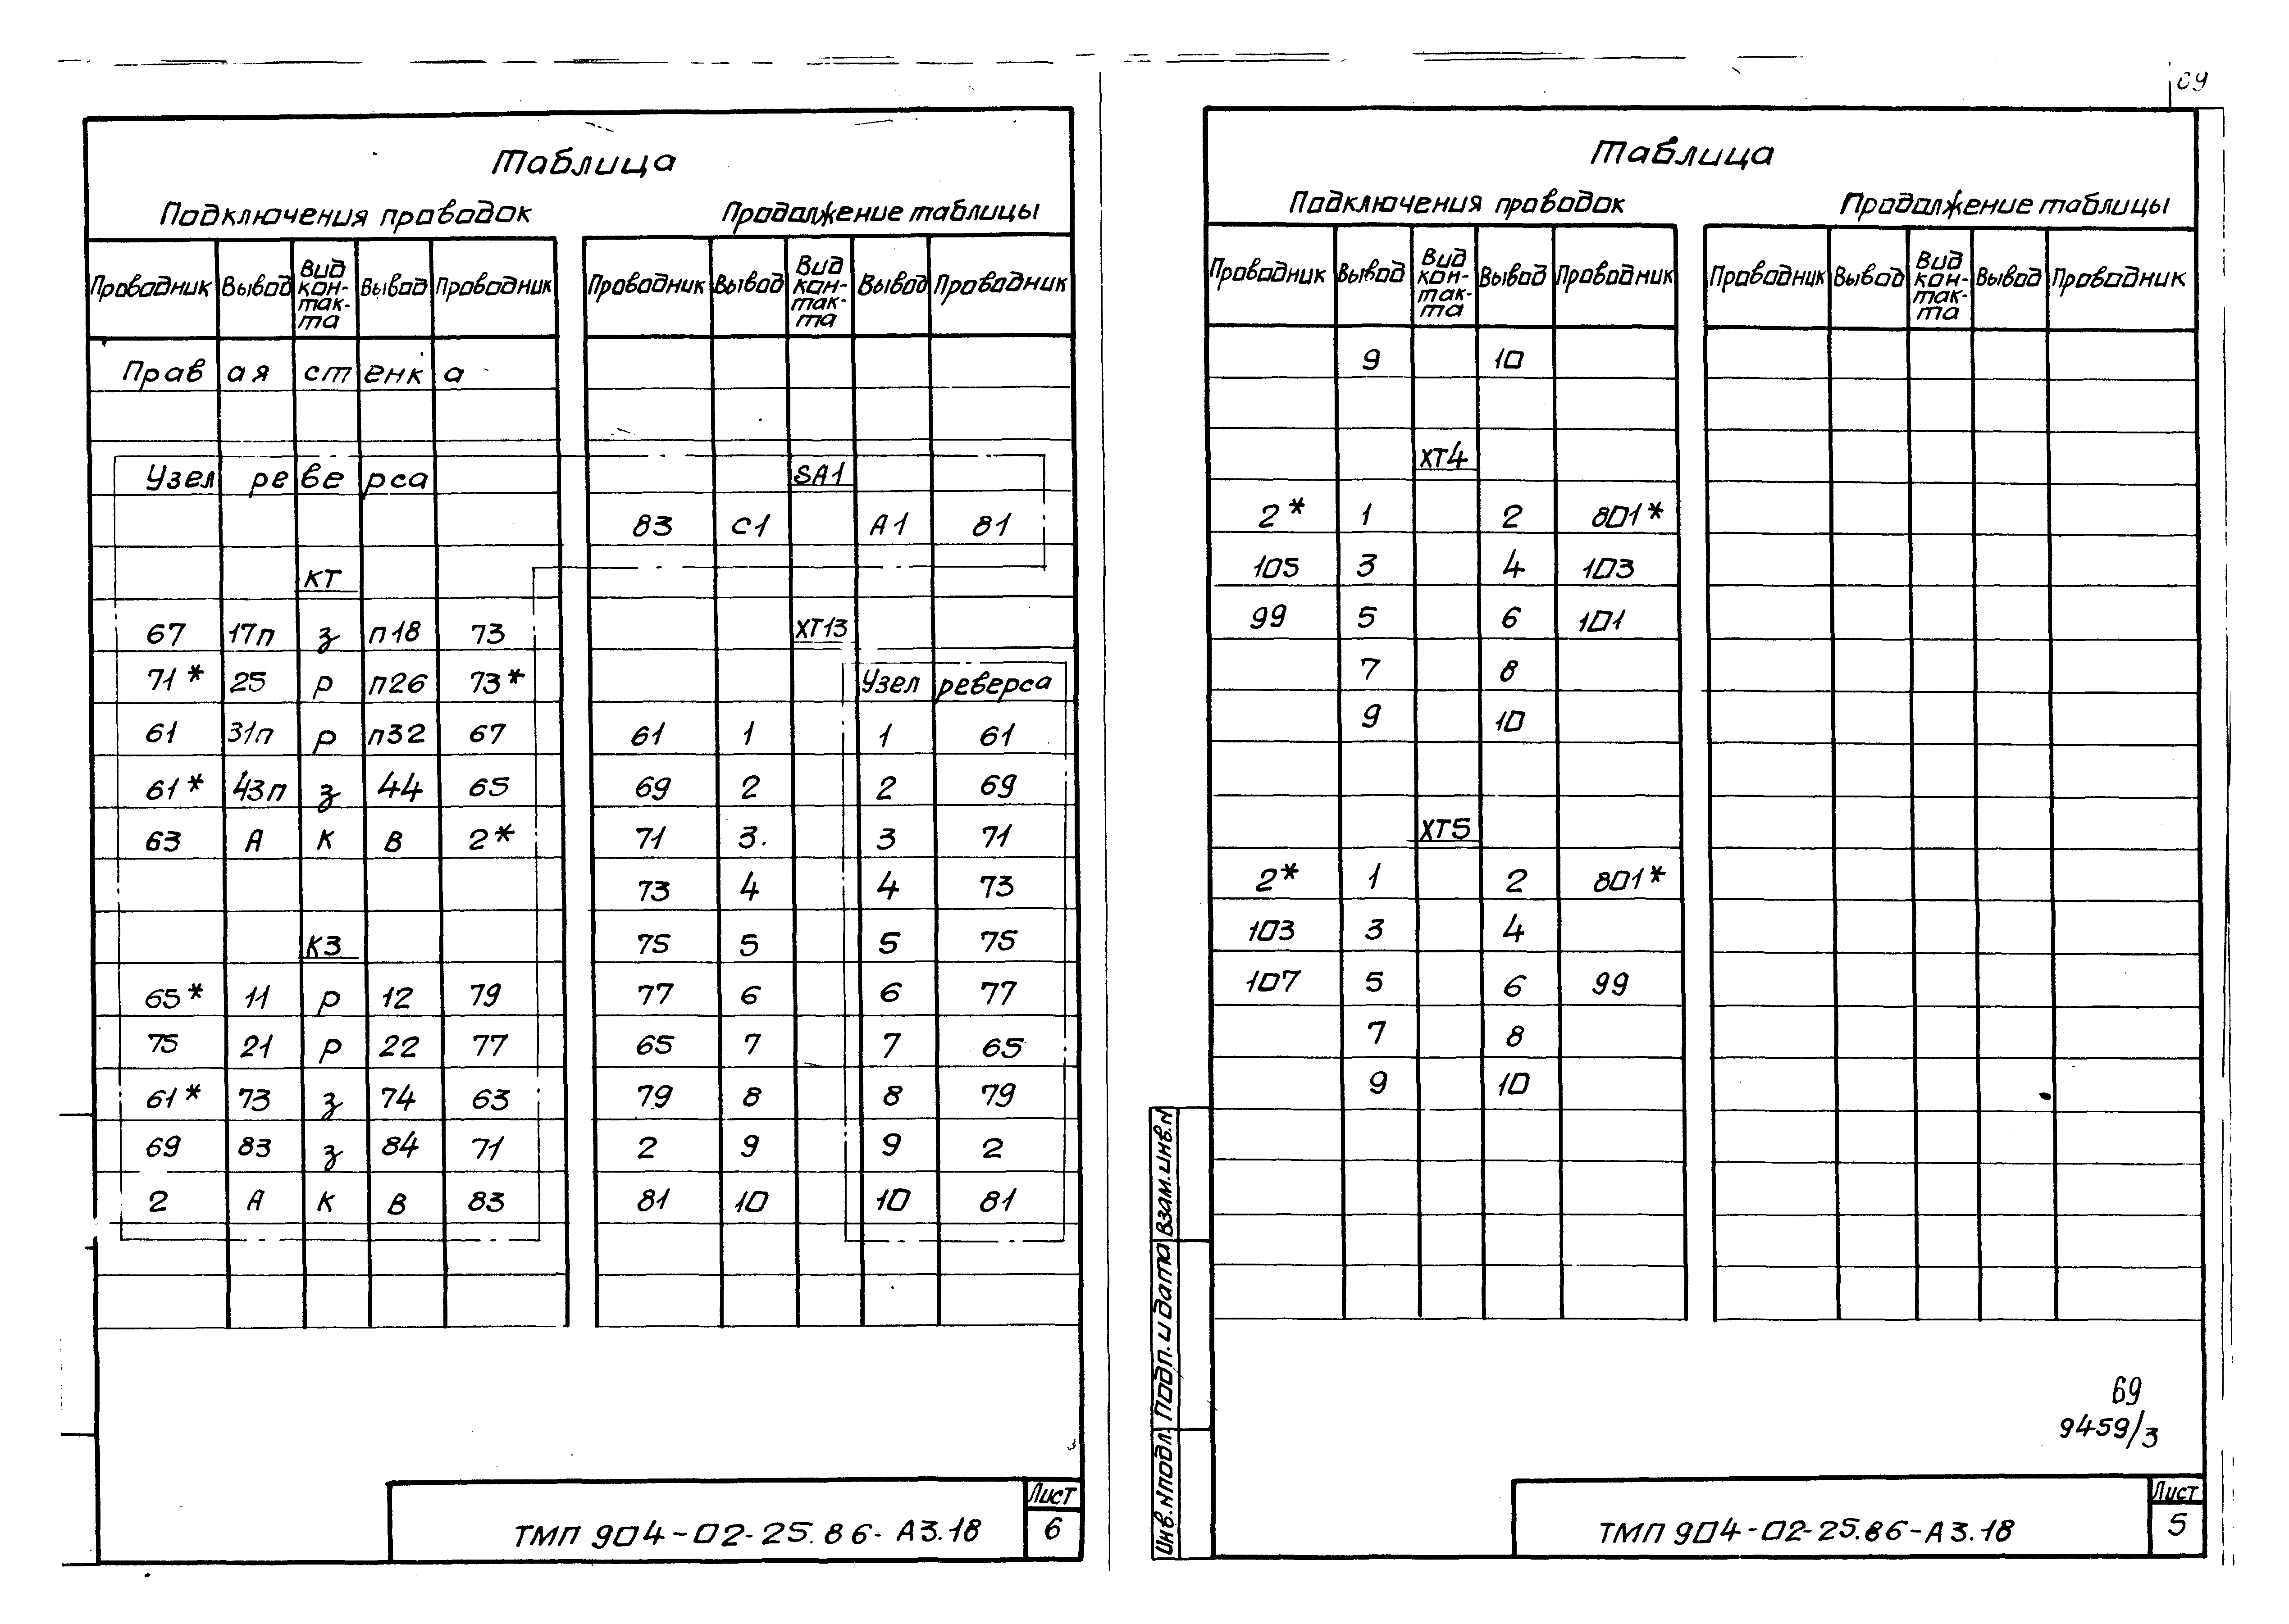 69
Таблица
Подключения проводок Продолжение таблицы
Проводник Вывод Вид кон-так-та Вывод Проводник Проводник Вывод Вид кон-так-та Вывод Проводник
Правая стенка
Узел реверса SA1
83 С1 А1 81
КТ
67 17п з п18 73 ХТ13
71* 25 р п26 73* Узел реверса
61 31п р п32 67 61 1 1 61
61* 43п з 44 65 69 2 2 69
63 А К В 2* 71 3. 3 71
73 4 4 73
К3 75 5 5 75
65* 11 р 12 79 77 6 6 77
75 21 р 22 77 65 7 7 65
61* 73 з 74 63 79 8 8 79
69 83 з 84 71 2 9 9 2
2 А К В 83 81 10 10 81
ТМП 904-02-25.86-А3.18
Лист
6
Таблица
Подключения проводок Продолжение таблицы
Проводник Вывод Вид кон-так-та Вывод Проводник Проводник Вывод Вид кон-так-та Вывод Проводник
9 10
ХТ4
2* 1 2 801*
105 3 4 103
99 5 6 101
7 8
9 10
ХТ5
2* 1 2 801*
103 3 4
107 5 6 99
7 8
9 10
Инв.Nподл. Подп. и дата Взам.инв.N
69
9459/3
ТМП 904-02-25.86-А3.18
Лист
5